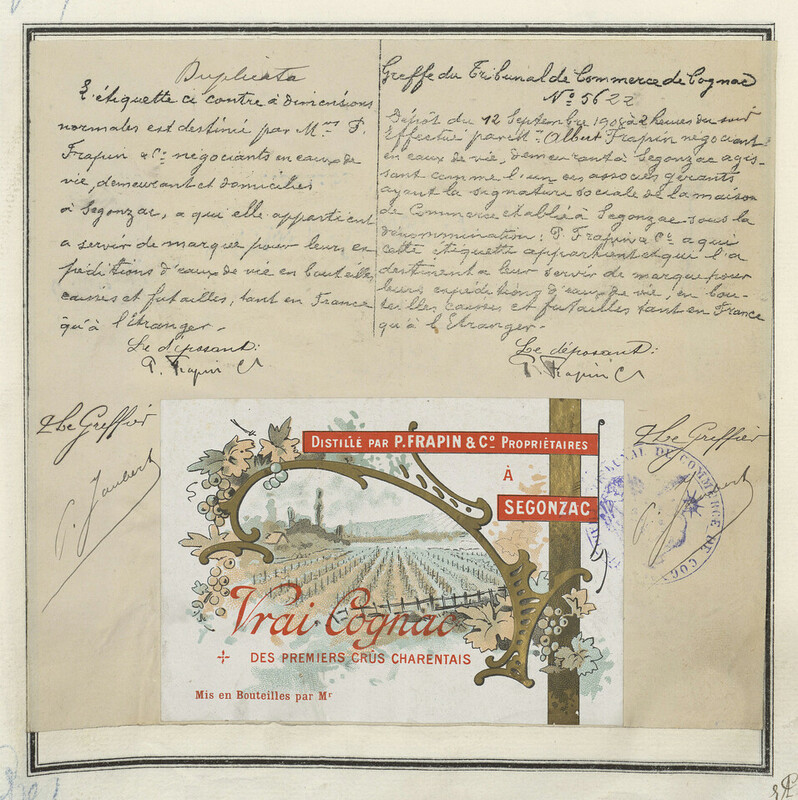 Duplicata
L'étiquette ci contre à dimensions
normales est destiné par M.rs P.
Frapin & Cie négociants en eaux de
vie, demeurant et domiciliés
à Segonzac, a qui elle appartient
a servir de marque pour leurs ex
péditions d'eaux de vie en bouteilles
caisses et futailles, tant en France
qu'à l'Etranger.
Le déposant:
P. Frapin Cie
Greffe du Tribunal de Commerce de Cognac
No 5622
Dépôt du 12 Septembre 1908 à 2 heures du soir
Effectué par Mr Albert Frapin négociant
en eaux de vie, demeurant à Segonzac agis-
sant comme l'un des associés gérants
ayant la signature sociale de la maison
de Commerce établie à Segonzac sous la
dénommination: P. Frapin & Cie a qui
cette étiquette appartient et qui l'a
destinent a leur servir de marque pour
leurs expéditions d'eaux de vie, en bou-
teilles caisses et futailles tant en France
qu'à l'Etranger.
Le déposant:
P. Frapin Cie
Le Greffier
P. Jaubert
Distillé par P. FRAPIN & Co Propriétaires
À
SEGONZAC
Vrai Cognac
DES PREMIERS CRÛS CHARENTAIS
Mis en Bouteilles par Mr
Le Greffier
P. Jaubert
TRIBUNAL DE COMMERCE DE COG